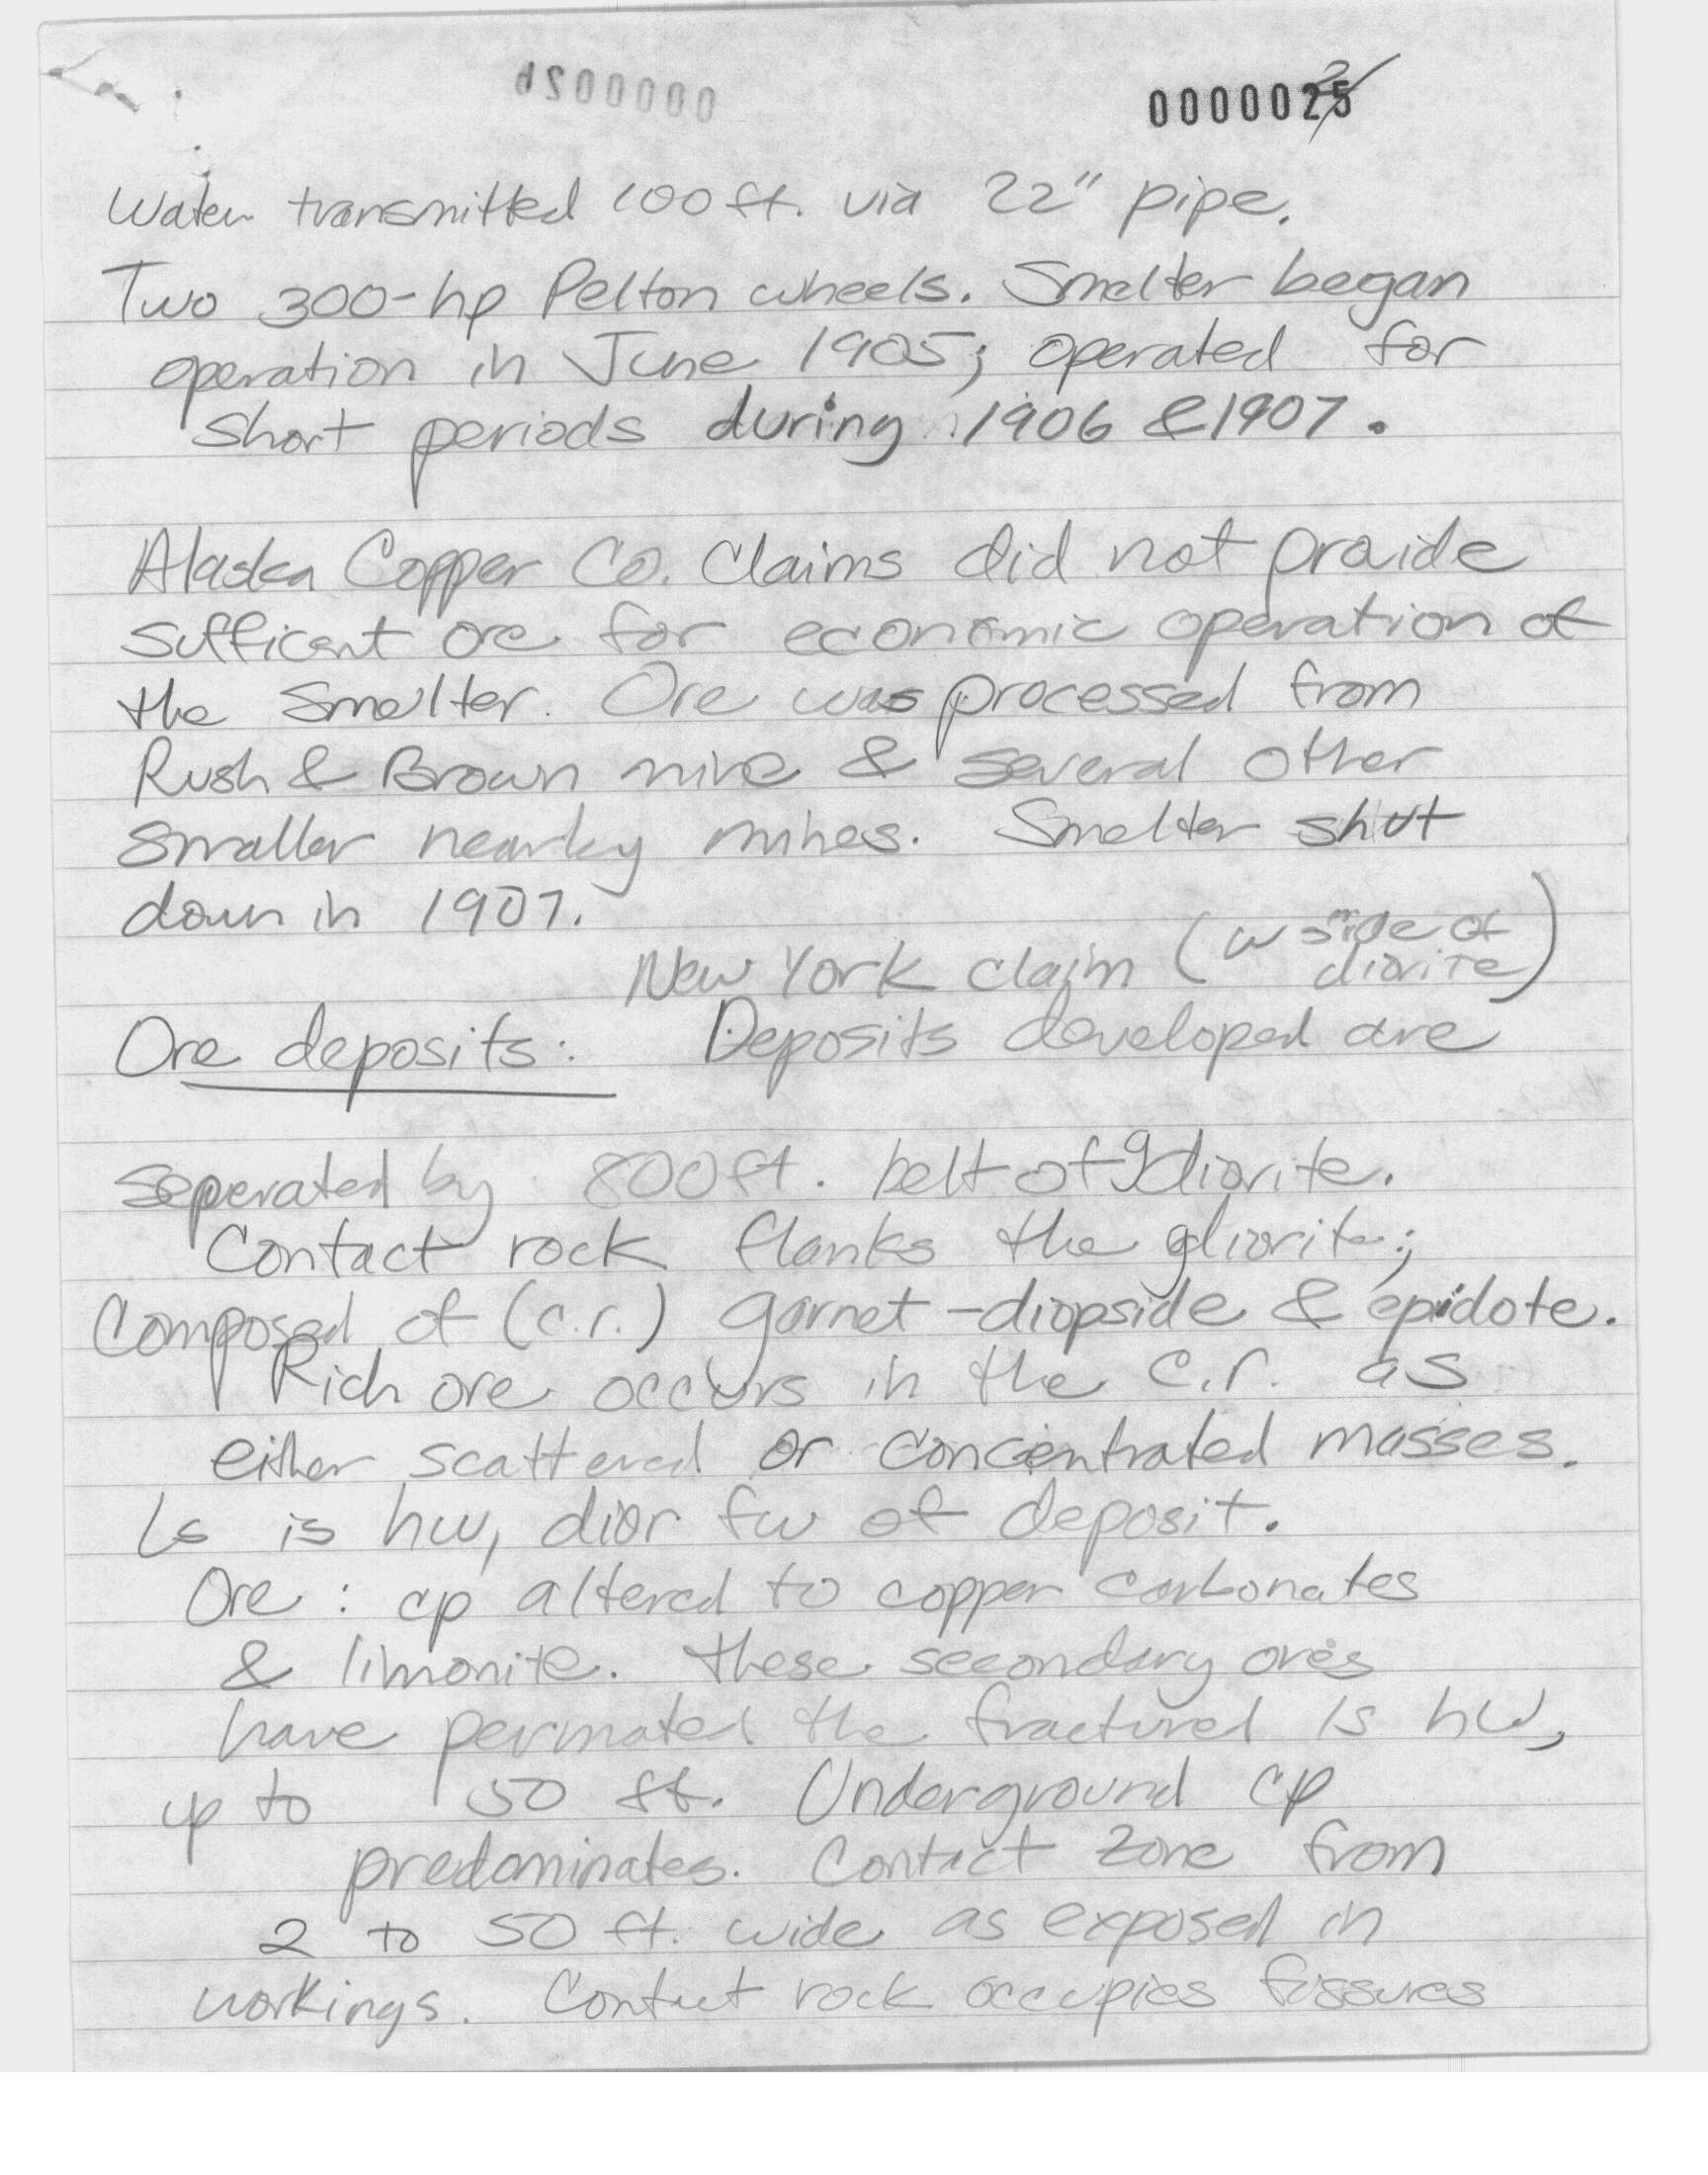 0000025
Water transmitted 100 ft. via 22" pipe.
Two 300-hp Pelton wheels. Smelter began
operation in June 1905; operated for
short periods during 1906 & 1907.
Alaska Copper Co. Claims did not provide
sufficent ore for economic operation of
the smelter. Ore was processed from
Rush & Brown mine & several other
smaller nearby mines. Smelter shut
down in 1907.
New York claim (w side of
diorite)
Ore deposits: Deposits developed are
seperated by 800 ft. belt of gdiorite.
Contact rock flanks the gdiorite;
Composed of (c.r.) garnet-diopside & epidote.
Rich ore occurs in the c.r. as
either scattered or concentrated masses.
ls is hw, dior fw of deposit.
Ore: cp altered to copper carbonates
& limonite. these secondary ores
have permated the fractured ls hw,
up to 50 ft. Underground cp
predominates. Contact zone from
2 to 50 ft. wide as exposed in
workings. Contact rock occupies fissures